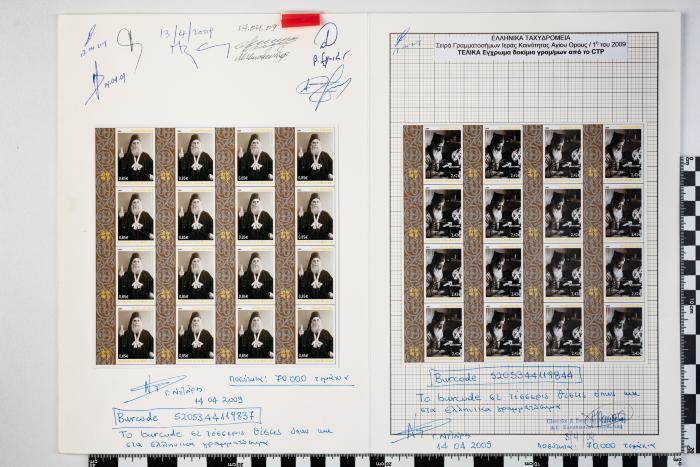 13/4/2009
14.04.09
14.04.09
ΕΛΛΗΝΙΚΑ ΤΑΧΥΔΡΟΜΕΙΑ
Σειρά Γραμματοσήμων Ιεράς Κοινότητας Αγίου Ορους / 1º του 2009
ΤΕΛΙΚΑ Εγχρωμα δοκίμια γραμ/μων από το CTP
0,85€ 0,85€ 0,85€ 0,85€
0,85€ 0,85€ 0,85€ 0,85€
0,85€ 0,85€ 0,85€ 0,85€
0,85€ 0,85€ 0,85€ 0,85€
2,42€ 2,42€ 2,42€ 2,42€
2,42€ 2,42€ 2,42€ 2,42€
2,42€ 2,42€ 2,42€ 2,42€
2,42€ 2,42€ 2,42€ 2,42€
ποσότητα: 70.000 τεμάχια
14 04 2009
Burcode 5205344119837
Το burcode σε τέσσερις θέσεις όπως και
στα ελληνικά γραμματόσημα
Burcode 5205344119844
Το burcode σε τέσσερις θέσεις όπως και
στα ελληνικά γραμματόσημα
14 04 2009
ποσότητα: 70.000 τεμάχια